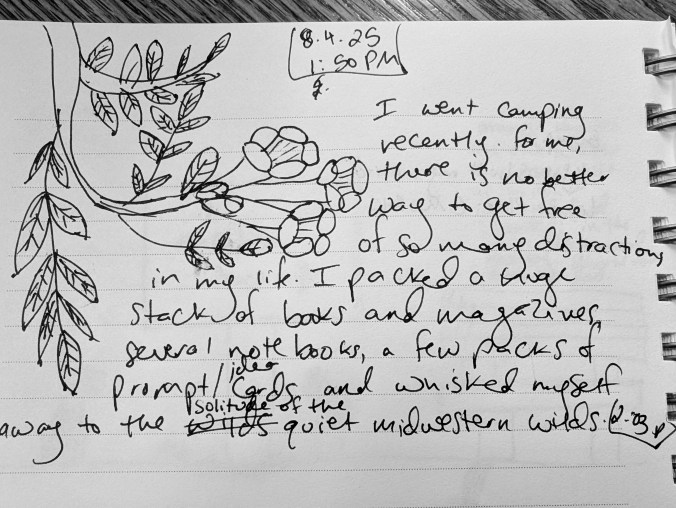 8.4.25
1:50 PM
I went camping
recently. for me,
there is no better
way to get free
of so many distractions
in my life. I packed a huge
stack of books and magazines,
several notebooks, a few packs of
prompt/idea cards and whisked myself
away to the solitude of the quiet midwestern wilds.